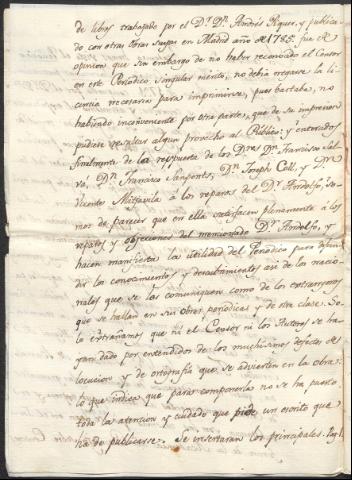 de libros trabajado por el D.r D.n Andrés Piquer, y publica
do con otras Obras suyas en Madrid año de 1785. fue de
opinion que sin embargo de no haber reconocido el Censor
en este Periodico singular merito, no debia negarse la li
cencia necesaria para imprimirse, pues bastaba, no
habiendo inconveniente por otra parte, que de su impresion
pudiese resultar algun provecho al Publico: y enterados
finalmente de la respuesta de los D.res D.n Francisco Sal
vá, D.n Francisco Sanponts, D.n Joseph Coll, y D.n
Vicente Mitjavila á los reparos del D.r Ardolfo, so
mos de parecer que en ella satisfacen plenamente á los
reparos y objeciones del mencionado D.r Ardolfo, y
hacen manifiesta la utilidad del Periodico para difun
dir los conocimientos y descubrimientos asi de los nacio
nales que se les comuniquen como de los extrangeros
que se hallan en sus obras periodicas y de otra clase. So
lo extrañamos que ni el Censor ni los Autores se ha
yan dado por entendidos de los muchisimos defectos de
locucion y de ortografía que se advierten en la obra:
lo que indica que para componerla no se ha puesto
toda la atencion y cuidado que pide un escrito que
ha de publicarse. Se insertaran los principales. Pag. 1.